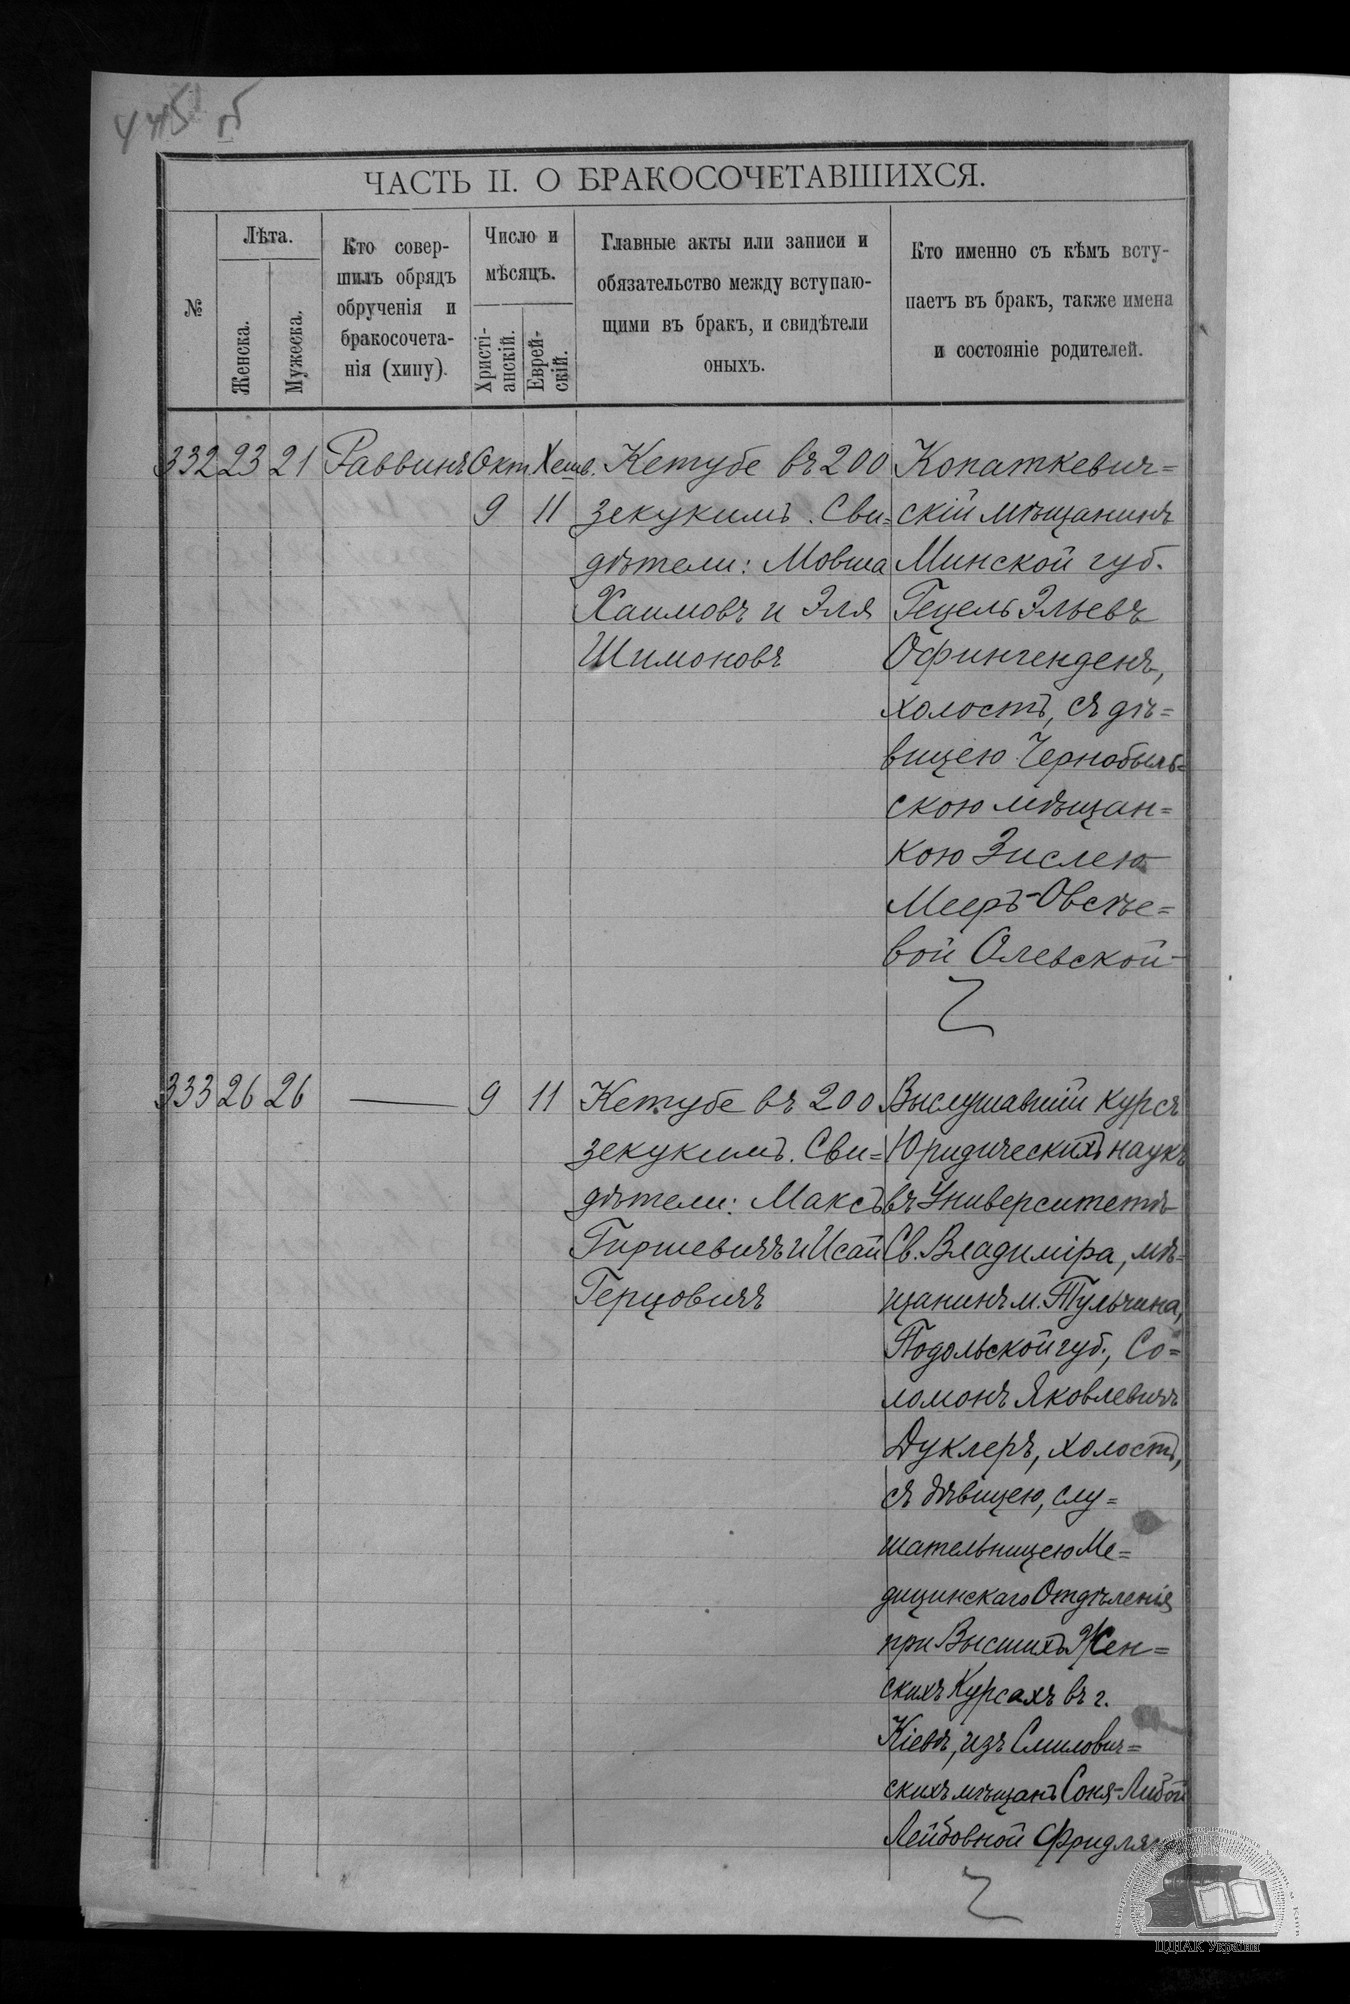 445 об
ЧАСТЬ II. О БРАКОСОЧЕТАВШИХСЯ.
№
Лѣта.
Женска.
Мужеска.
Кто совер-
шилъ обрядъ
обрученія и
бракосочета-
нія (хипу).
Число и
мѣсяцъ.
Христі-
анскій.
Еврей-
скій.
Главные акты или записи и
обязательство между вступаю-
щими въ бракъ, и свидѣтели
оныхъ.
Кто именно съ кѣмъ всту-
паетъ въ бракъ, также имена
и состояніе родителей.
332 23 21 Раввинъ Окт. Хешв.
9 11
Кетубе въ 200
зекукимъ. Сви=
дѣтели: Мовша
Хаимовъ и Эля
Шимоновъ
Копаткевич=
скій мѣщанинъ
Минской губ.
Гецель Эльевъ
Офингенденъ,
холостъ, съ дѣ=
вицею Чернобыль=
скою мѣщан=
кою Зислею
Мееръ-Овсѣе=
вой Олевской
333 26 26 — 9 11
Кетубе въ 200
зекукимъ. Сви=
дѣтели: Максъ
Гиршевичъ и Исай
Герцовичъ
Выслушавшій курсъ
Юридическихъ наукъ
въ Университетѣ
Св. Владиміра, мѣ=
щанинъ м. Тульчина,
Подольской губ., Со=
ломонъ Яковлевичъ
Дуклеръ, холостъ,
съ дѣвицею, слу=
шательницею Ме=
дицинскаго Отдѣленія
при Высшихъ Жен=
скихъ Курсахъ въ г.
Кіевѣ, изъ Смилович=
скихъ мѣщанъ Соня-Либой
Лейбовной
ЦДІАК України